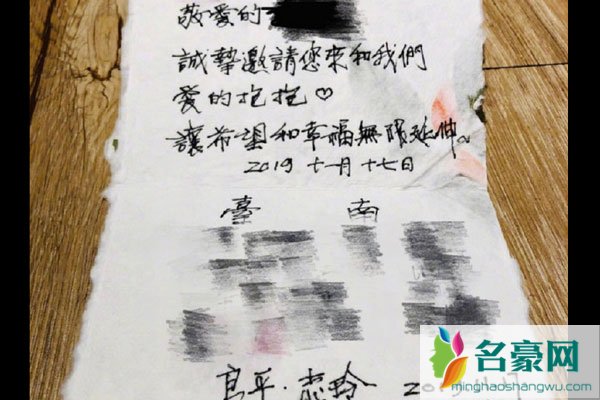 敬愛的
誠摯邀請您來和我們
愛的抱抱♡
讓希望和幸福無限延伸~
2019 十一月十七日
臺 南
良平·志玲
名豪网
minghaoshangwu.com